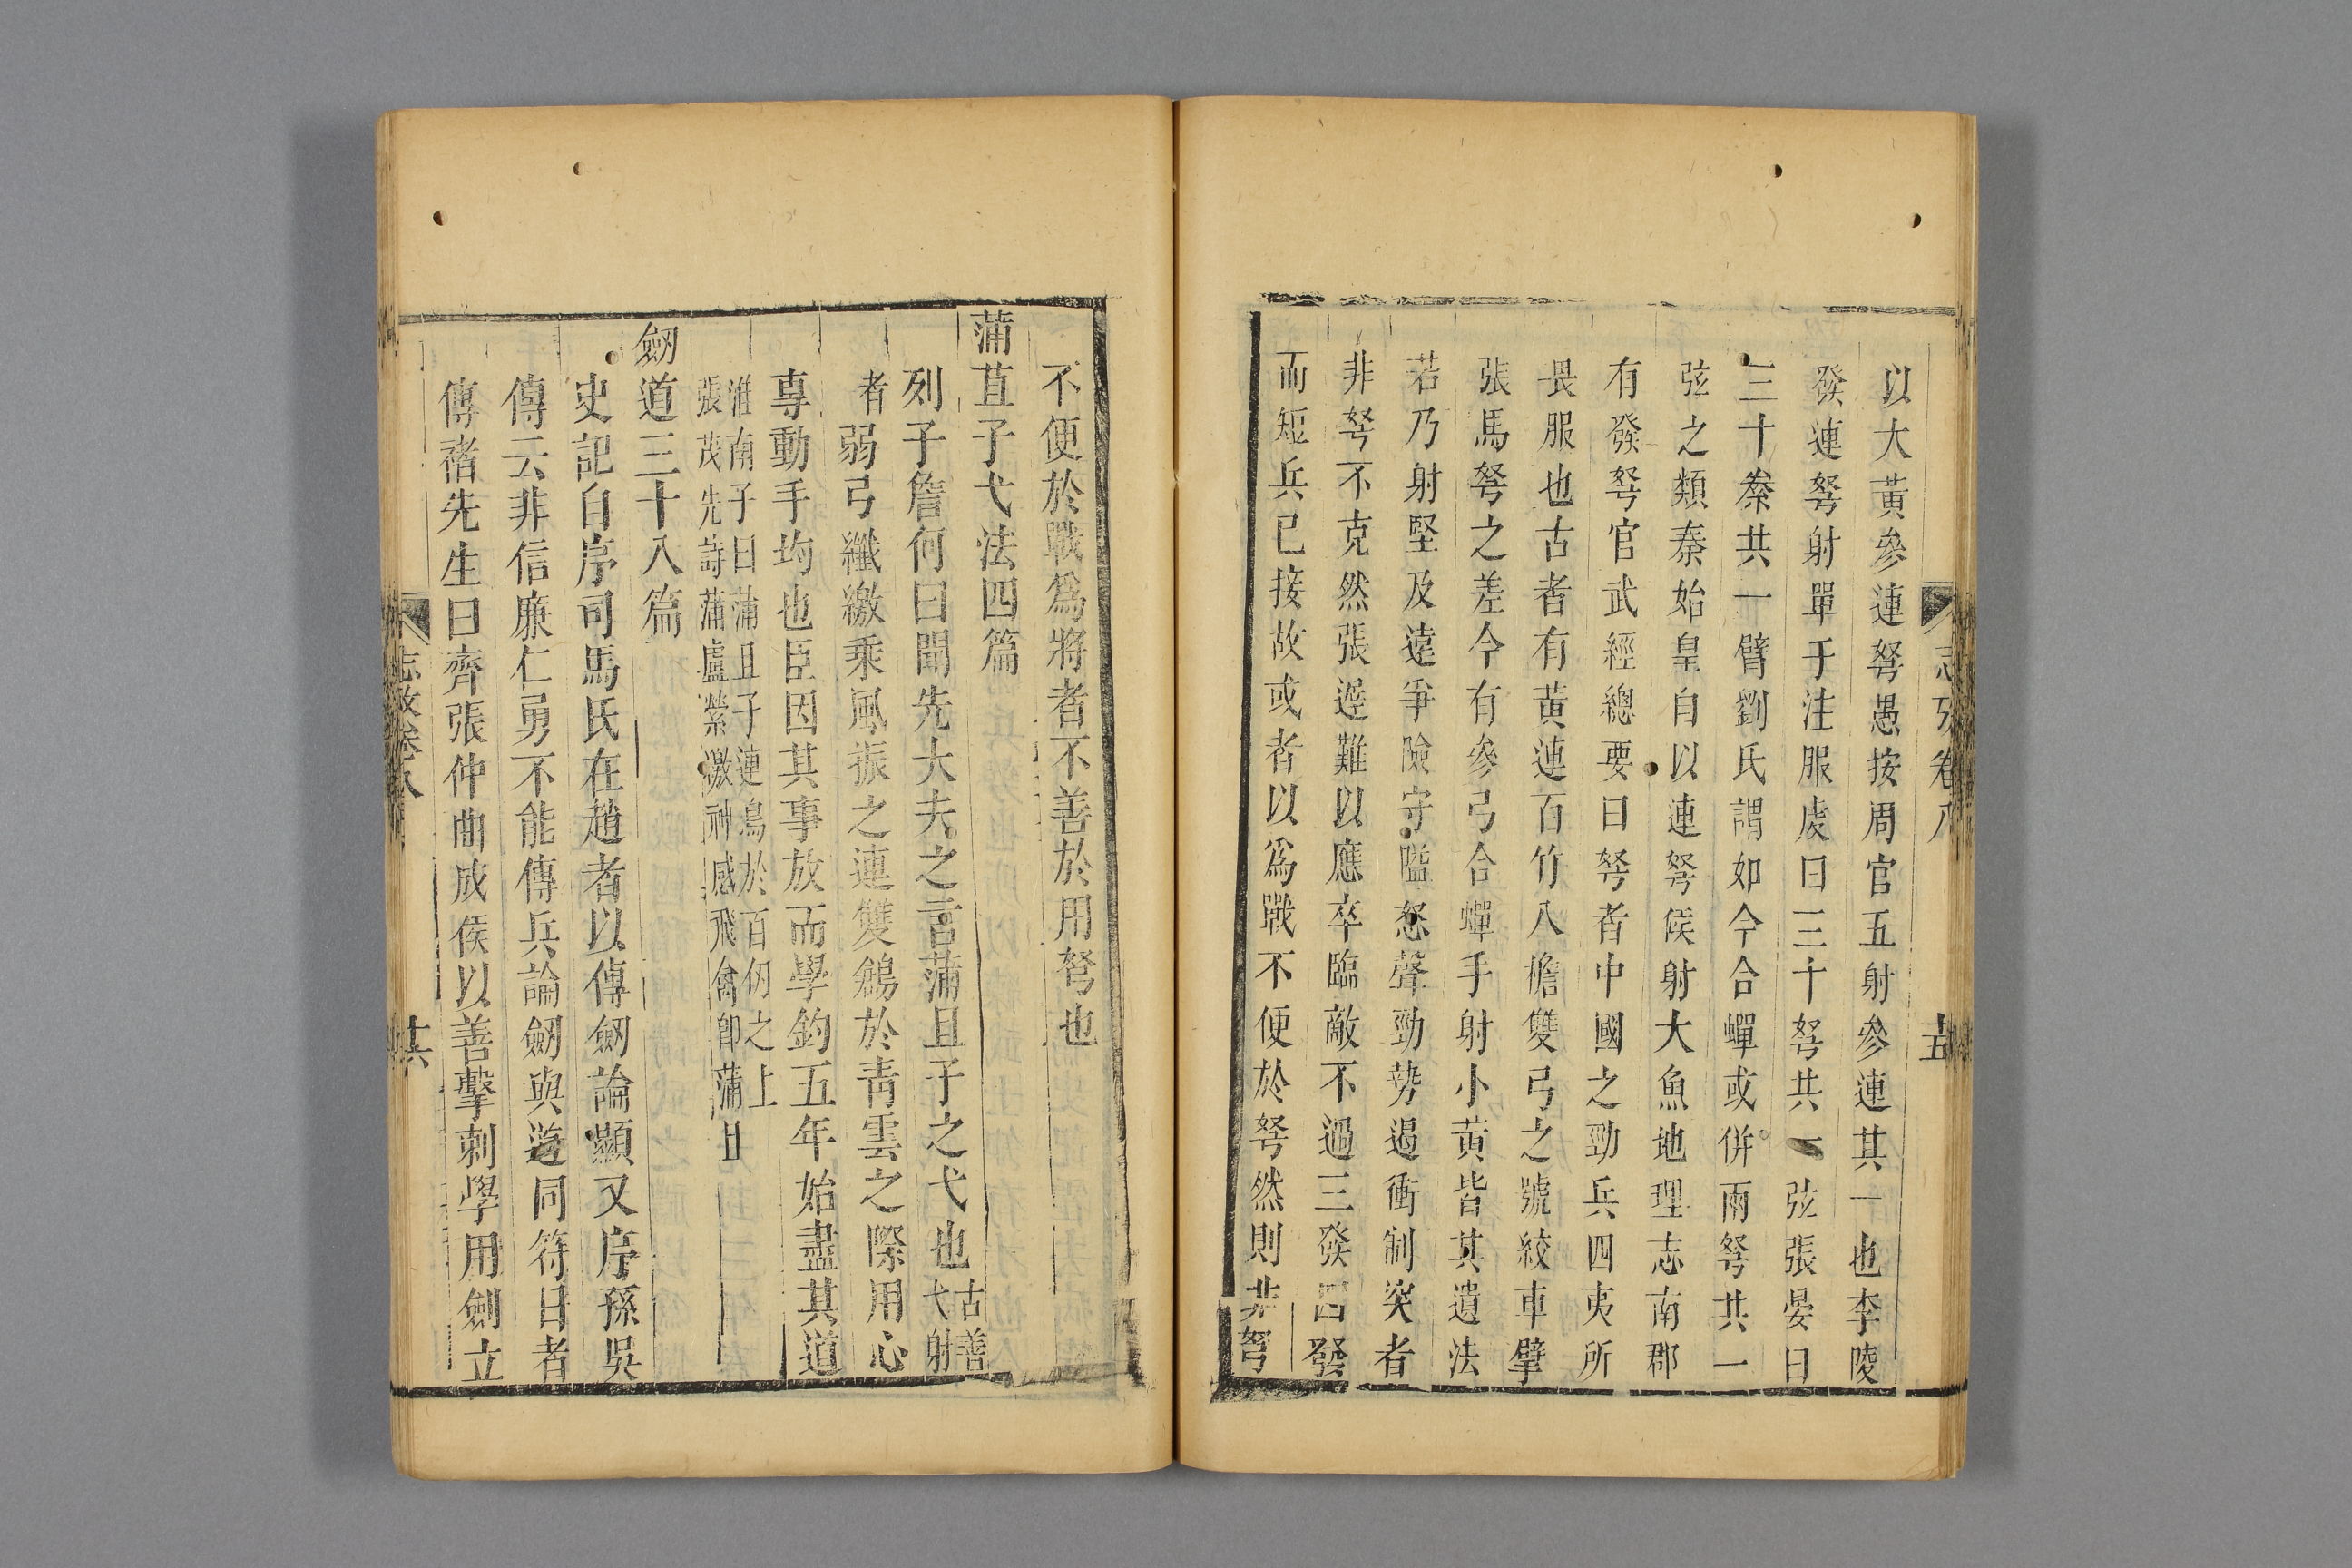 志攷卷八
十五
以大黃參連弩愚按周官五射參連其一也李陵
發連弩射單于注服虔曰三十弩共一弦張晏曰
三十絭共一臂劉氏謂如今合蟬或併兩弩共一
弦之類秦始皇自以連弩候射大魚地理志南郡
有發弩官武經總要曰弩者中國之勁兵四夷所
畏服也古者有黃連百竹八檐雙弓之號絞車擘
張馬弩之差今有參弓合蟬手射小黃皆其遺法
若乃射堅及遠爭險守隘怒聲勁勢遏衝制突者
非弩不克然張遲難以應卒臨敵不過三發四發
而短兵已接故或者以爲戰不便於弩然則非弩
不便於戰爲將者不善於用弩也
蒲苴子弋法四篇
列子詹何曰聞先大夫之言蒲且子之弋也古善弋射
者弱弓纖繳乘風振之連雙鶬於青雲之際用心
專動手均也臣因其事放而學釣五年始盡其道
淮南子曰蒲且子連鳥於百仞之上
張茂先詩蒲盧縈繳神感飛禽卽蒲且
劒道三十八篇
史記自序司馬氏在趙者以傳劒論顯又序孫吳
傳云非信廉仁勇不能傳兵論劒與道同符日者
傳褚先生曰齊張仲曲成侯以善擊刺學用劍立
志攷卷八
十六